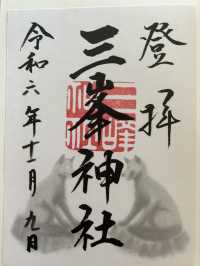 登拝
三峯神社
令和六年十一月九日